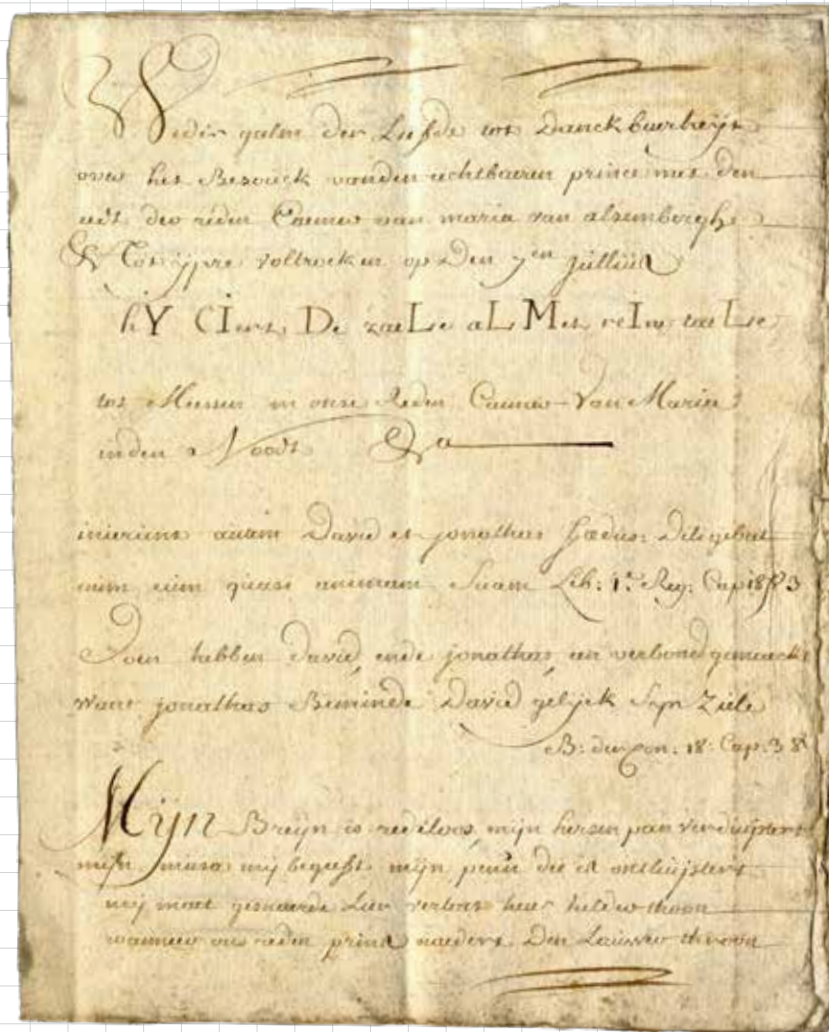 Weder galm der Liefde tot Danckbaerheijt
over het Besouck vanden achtbaeren prince met den
der reden Camer van maria van alsembergh
Tot ijpre voltrocken op Den 7en Jullius
hY CIert De zaeLe aL Met reIne taeLe
tot in onse Reden Camer Van Maria
inden Noodt
inierunt autem David et jonathas foedus: Diligebat
enim eum quasi animam Suam Lib: 1. Reg: Cap 18 3
Doen hebben David, ende jonathas, een verbond gemaeckt
want jonathas Beminde David gelijck Sijn Ziele
B: der Con: 18: Cap: 3
Mijn Breijn is redeloos, mijn hersen pan verduijstert
mijn musa mij begeeft mijn penne die is ontluijstert
mij maet gesnaerde Lier verliest heur helder thoon
wanneer ons reden prins naedert Den Lauwer throon